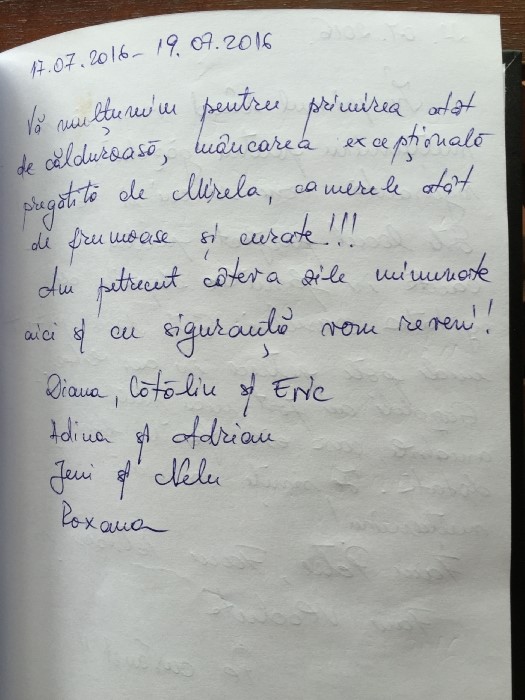 17.07.2016 - 19.07.2016
Vă mulțumim pentru primirea atât
de călduroasă, mâncarea excepțională
pregătită de Mirela, camerele atât
de frumoase și curate!!!
Am petrecut câteva zile minunate
aici și cu siguranță vom reveni!
Diana, Cătălin și Eric
Adina și Adrian
Jeni și Nelu
Roxana